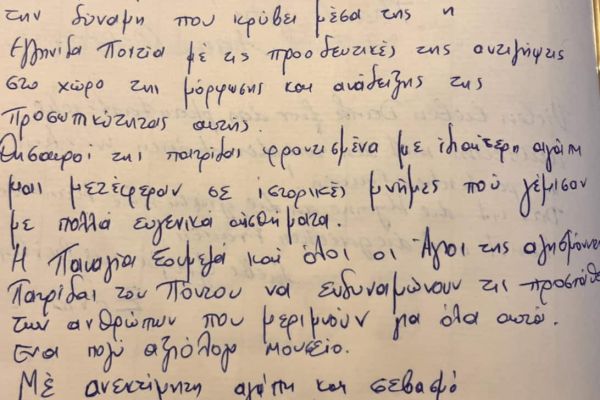 την δύναμη που κρύβει μέσα της η
Ελληνίδα Ποντία με τις προοδευτικές της αντιλήψεις
στο χώρο της μόρφωσης και ανάδειξης της
προσωπικότητας αυτής.
Θησαυροί της πατρίδας φροντισμένα με ιδιαίτερη αγάπη
μας μετέφεραν σε ιστορικές μνήμες πού γέμισαν
με πολλά ευγενικά αισθήματα.
Η Παναγία Σουμελά και όλοι οι Άγιοι της αλησμόνητ
Πατρίδας του Πόντου να ενδυναμώνουν τις προσπάθ
των ανθρώπων που μεριμνούν για όλα αυτά.
Ένα πολύ αξιόλογο μουσείο.
Μέ ανεκτίμητη αγάπη και σεβασμό